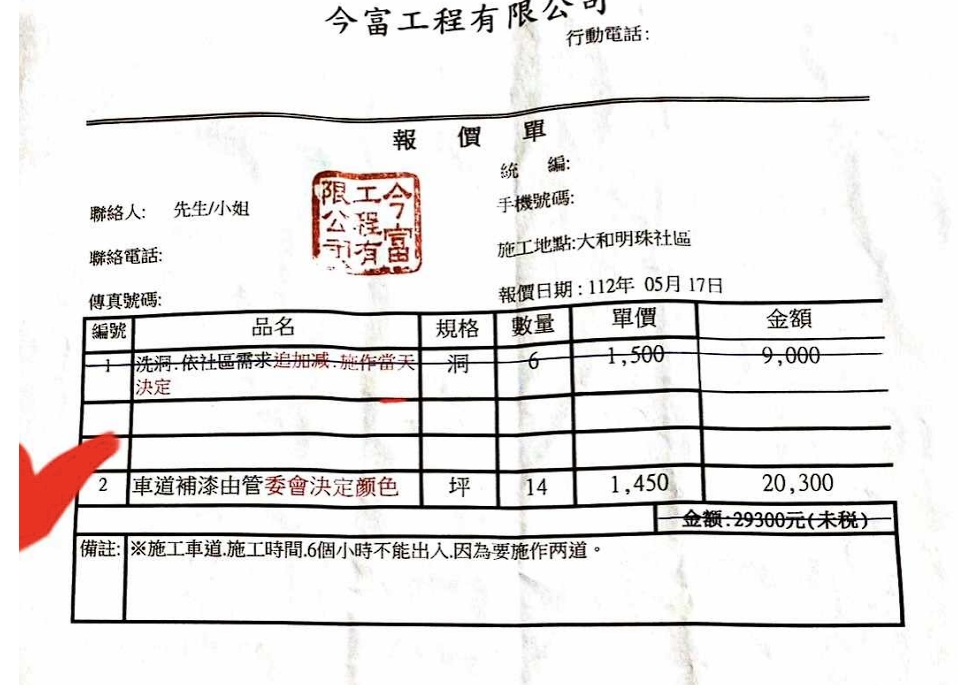 今富工程有限公司
行動電話:
報 價 單
統 編:
聯絡人: 先生/小姐
手機號碼:
今富工程有限公司
聯絡電話:
施工地點:大和明珠社區
傳真號碼:
報價日期:112年 05月 17日
編號 品名 規格 數量 單價 金額
1 洗洞.依社區需求追加減.施作當天 洞 6 1,500 9,000
決定
2 車道補漆由管委會決定顏色 坪 14 1,450 20,300
金額:29300元(未稅)
備註: ※施工車道.施工時間.6個小時不能出入.因為要施作两道。